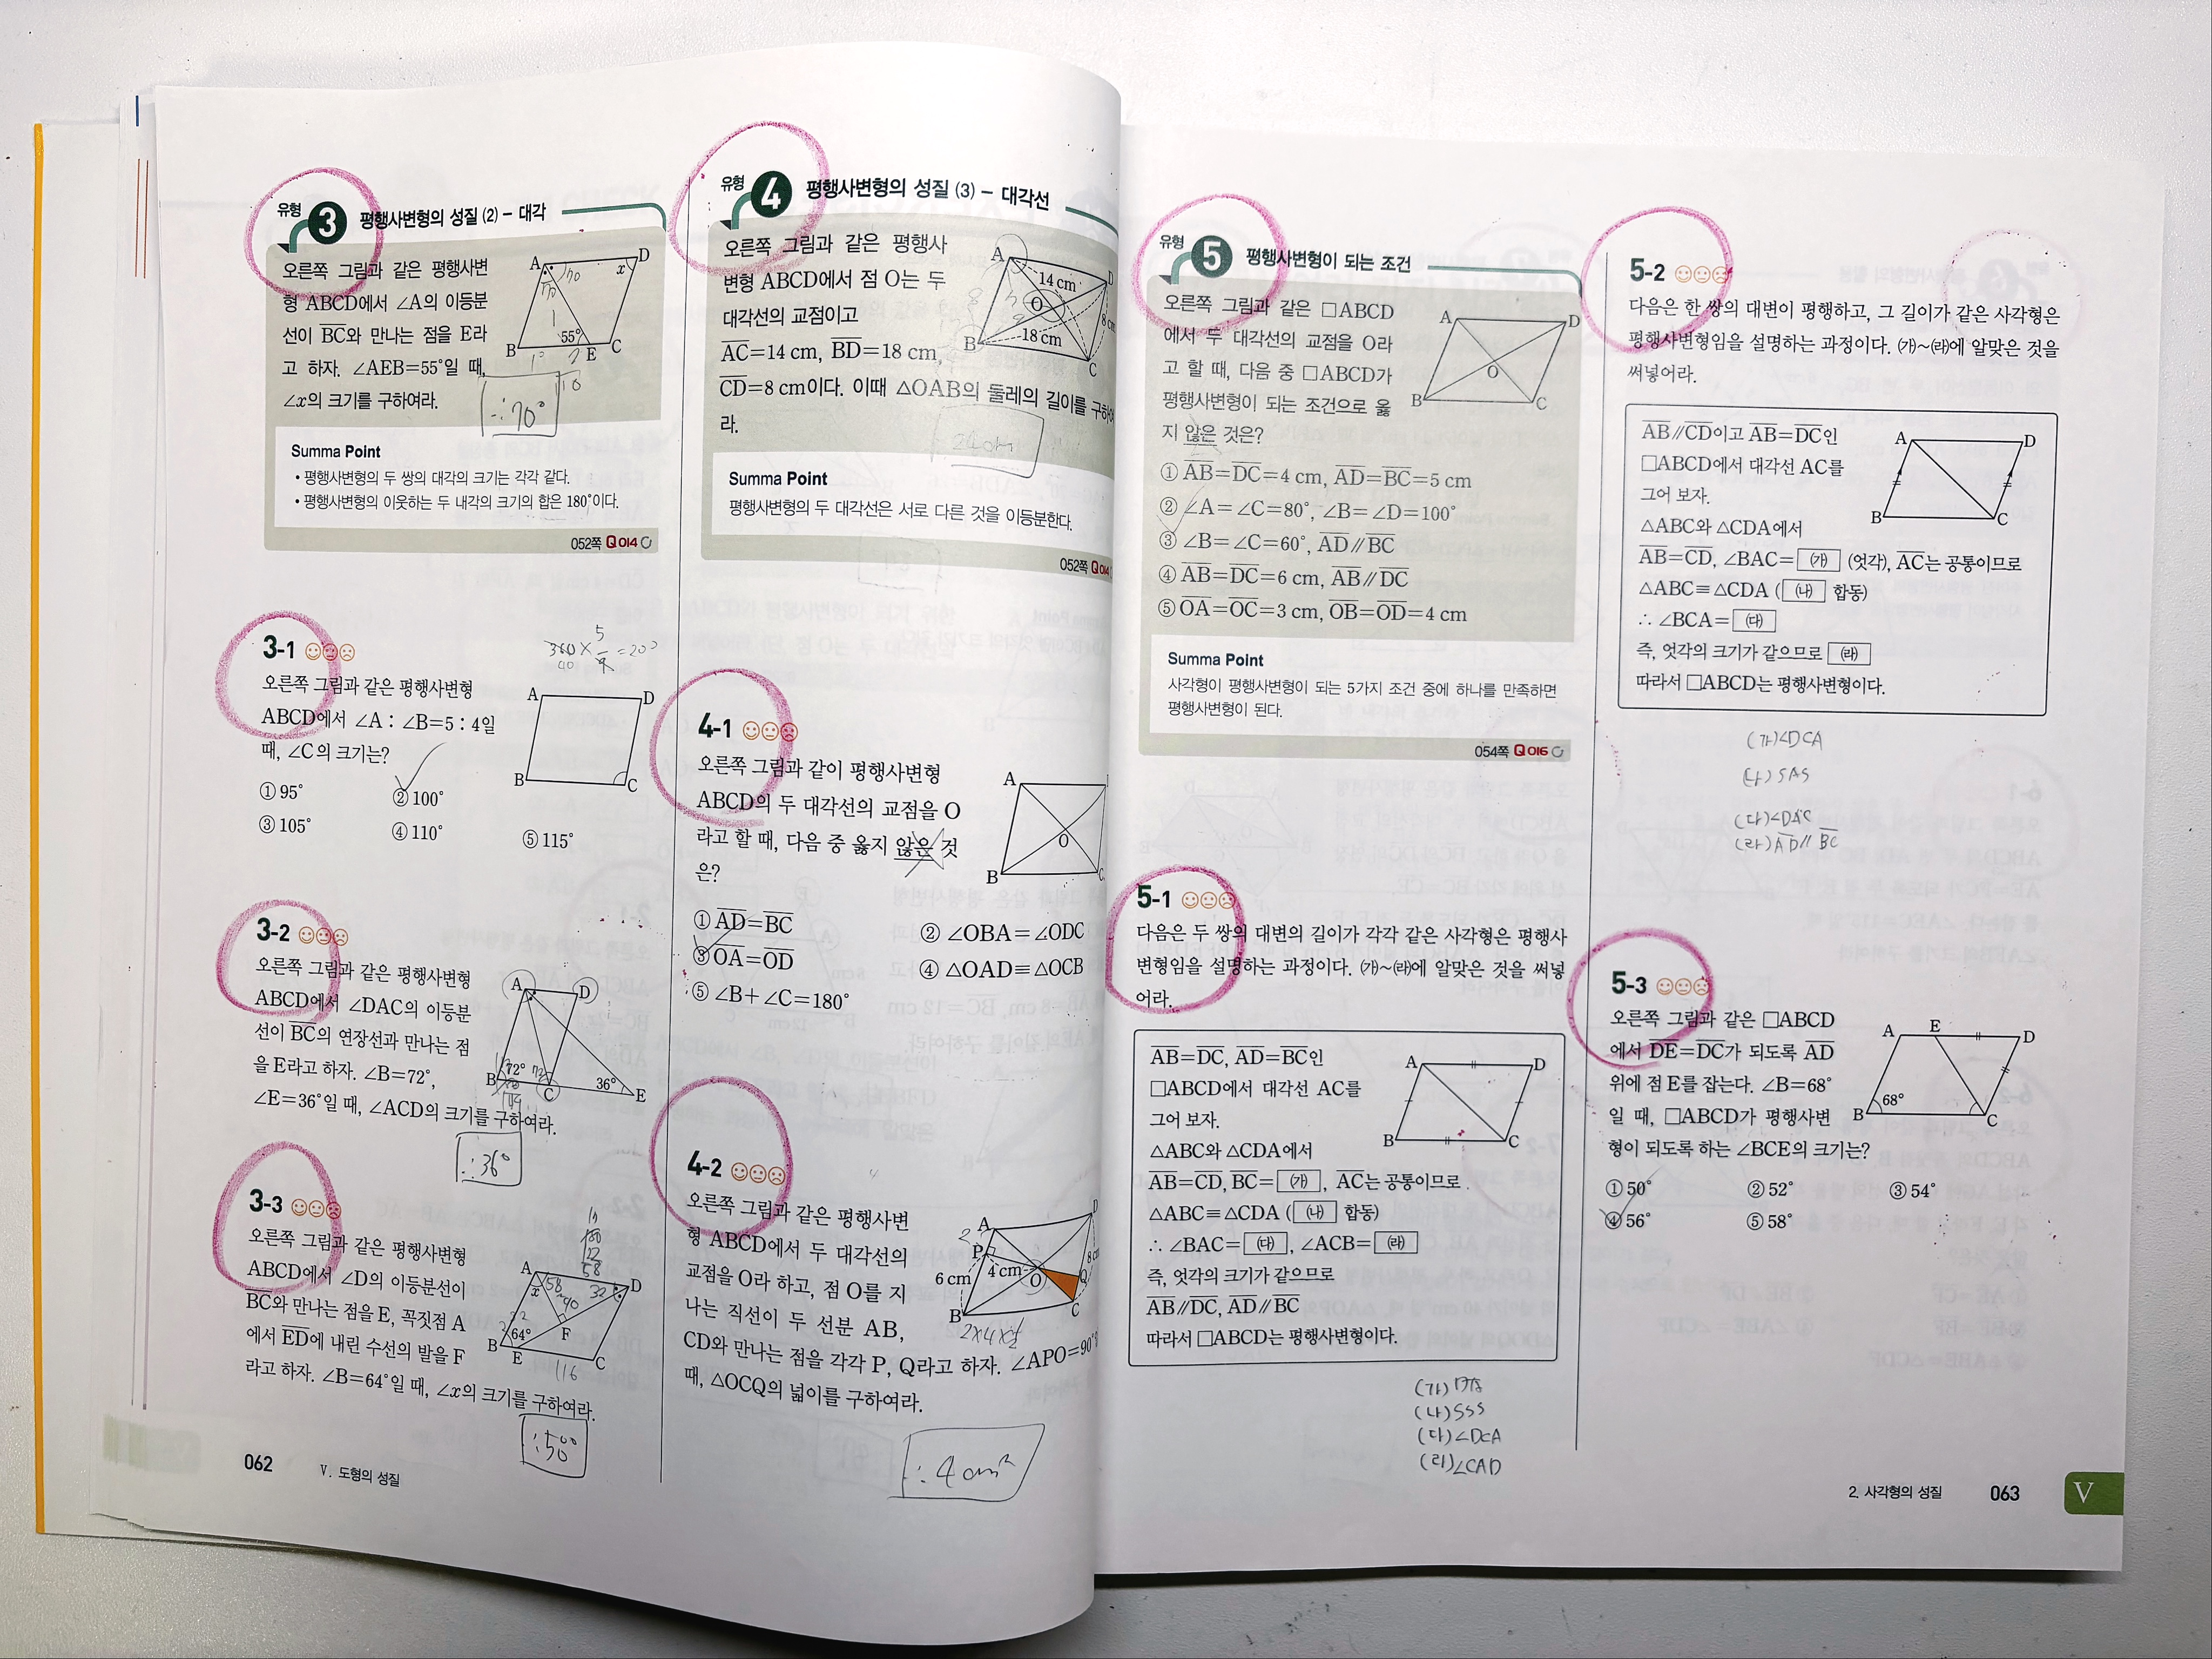 유형 3 평행사변형의 성질 (2) - 대각
오른쪽 그림과 같은 평행사변
형 ABCD에서 ∠A의 이등분
선이 BC와 만나는 점을 E라
고 하자. ∠AEB=55°일 때,
∠x의 크기를 구하여라.
A D x 70 70 55° B E C
∴70°
Summa Point
• 평행사변형의 두 쌍의 대각의 크기는 각각 같다.
• 평행사변형의 이웃하는 두 내각의 크기의 합은 180°이다.
052쪽 Q 014
3-1
360 × 5/9 = 200
오른쪽 그림과 같은 평행사변형
ABCD에서 ∠A : ∠B=5 : 4일
때, ∠C의 크기는?
A D B C
① 95° ② 100°
③ 105° ④ 110° ⑤ 115°
3-2
오른쪽 그림과 같은 평행사변형
ABCD에서 ∠DAC의 이등분
선이 BC의 연장선과 만나는 점
을 E라고 하자. ∠B=72°,
∠E=36°일 때, ∠ACD의 크기를 구하여라.
A D B 72° 72 C 36° E
∴36°
3-3
오른쪽 그림과 같은 평행사변형
ABCD에서 ∠D의 이등분선이
BC와 만나는 점을 E, 꼭짓점 A
에서 ED에 내린 수선의 발을 F
라고 하자. ∠B=64°일 때, ∠x의 크기를 구하여라.
A 58 D x 32 90 B 64° F E C 116
∴50°
062 V. 도형의 성질
유형 4 평행사변형의 성질 (3) - 대각선
오른쪽 그림과 같은 평행사
변형 ABCD에서 점 O는 두
대각선의 교점이고
AC=14 cm, BD=18 cm,
CD=8 cm이다. 이때 △OAB의 둘레의 길이를 구하여
라.
A 14 cm D O 8 cm B 18 cm C
24cm
Summa Point
평행사변형의 두 대각선은 서로 다른 것을 이등분한다.
052쪽 Q 014
4-1
오른쪽 그림과 같이 평행사변형
ABCD의 두 대각선의 교점을 O
라고 할 때, 다음 중 옳지 않은 것
은?
A O B C
① AD=BC ② ∠OBA=∠ODC
③ OA=OD ④ △OAD≡△OCB
⑤ ∠B+∠C=180°
4-2
오른쪽 그림과 같은 평행사변
형 ABCD에서 두 대각선의
교점을 O라 하고, 점 O를 지
나는 직선이 두 선분 AB,
CD와 만나는 점을 각각 P, Q라고 하자. ∠APO=90°
때, △OCQ의 넓이를 구하여라.
A D 2 P 4 cm 8 cm 6 cm O Q B C
2×4×½
∴4cm²
유형 5 평행사변형이 되는 조건
오른쪽 그림과 같은 □ABCD
에서 두 대각선의 교점을 O라
고 할 때, 다음 중 □ABCD가
평행사변형이 되는 조건으로 옳
지 않은 것은?
A D O B C
① AB=DC=4 cm, AD=BC=5 cm
② ∠A=∠C=80°, ∠B=∠D=100°
③ ∠B=∠C=60°, AD∥BC
④ AB=DC=6 cm, AB∥DC
⑤ OA=OC=3 cm, OB=OD=4 cm
Summa Point
사각형이 평행사변형이 되는 5가지 조건 중에 하나를 만족하면
평행사변형이 된다.
054쪽 Q 016
5-1
다음은 두 쌍의 대변의 길이가 각각 같은 사각형은 평행사
변형임을 설명하는 과정이다. ㈎~㈑에 알맞은 것을 써넣
어라.
AB=DC, AD=BC인
□ABCD에서 대각선 AC를
그어 보자.
△ABC와 △CDA에서
A D B C
AB=CD, BC= ㈎ , AC는 공통이므로
△ABC≡△CDA ( ㈏ 합동)
∴ ∠BAC= ㈐ , ∠ACB= ㈑
즉, 엇각의 크기가 같으므로
AB∥DC, AD∥BC
따라서 □ABCD는 평행사변형이다.
(가) DA
(나) SSS
(다) ∠DCA
(라) ∠CAD
5-2
다음은 한 쌍의 대변이 평행하고, 그 길이가 같은 사각형은
평행사변형임을 설명하는 과정이다. ㈎~㈑에 알맞은 것을
써넣어라.
AB∥CD이고 AB=DC인
□ABCD에서 대각선 AC를
그어 보자.
△ABC와 △CDA에서
A D B C
AB=CD, ∠BAC= ㈎ (엇각), AC는 공통이므로
△ABC≡△CDA ( ㈏ 합동)
∴ ∠BCA= ㈐
즉, 엇각의 크기가 같으므로 ㈑
따라서 □ABCD는 평행사변형이다.
(가) ∠DCA
(나) SAS
(다) ∠DAC
(라) AD∥BC
5-3
오른쪽 그림과 같은 □ABCD
에서 DE=DC가 되도록 AD
위에 점 E를 잡는다. ∠B=68°
일 때, □ABCD가 평행사변
형이 되도록 하는 ∠BCE의 크기는?
A E D B 68° C
① 50° ② 52° ③ 54°
④ 56° ⑤ 58°
2. 사각형의 성질 063 V